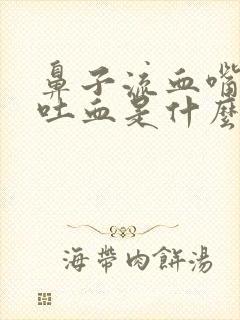 鼻子流血嘴
吐血是什麼
海帶肉餅湯